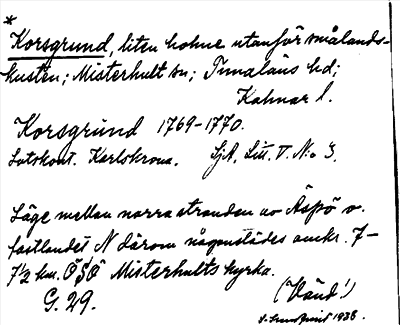 *
Korsgrund, liten holme utanför smålands-
kusten; Misterhult sn; Tunaläns hd;
Kalmar l.
Korsgrund 1769-1770.
Lotskont. Karlskrona. SjA, Litt. V. No 3.
Läge mellan norra stranden av Äspö o.
fastlandet N därom någonstädes omkr. 7-
7½ km. ÖSÖ Misterhults kyrka.
G. 29. (Vänd!)
1938.